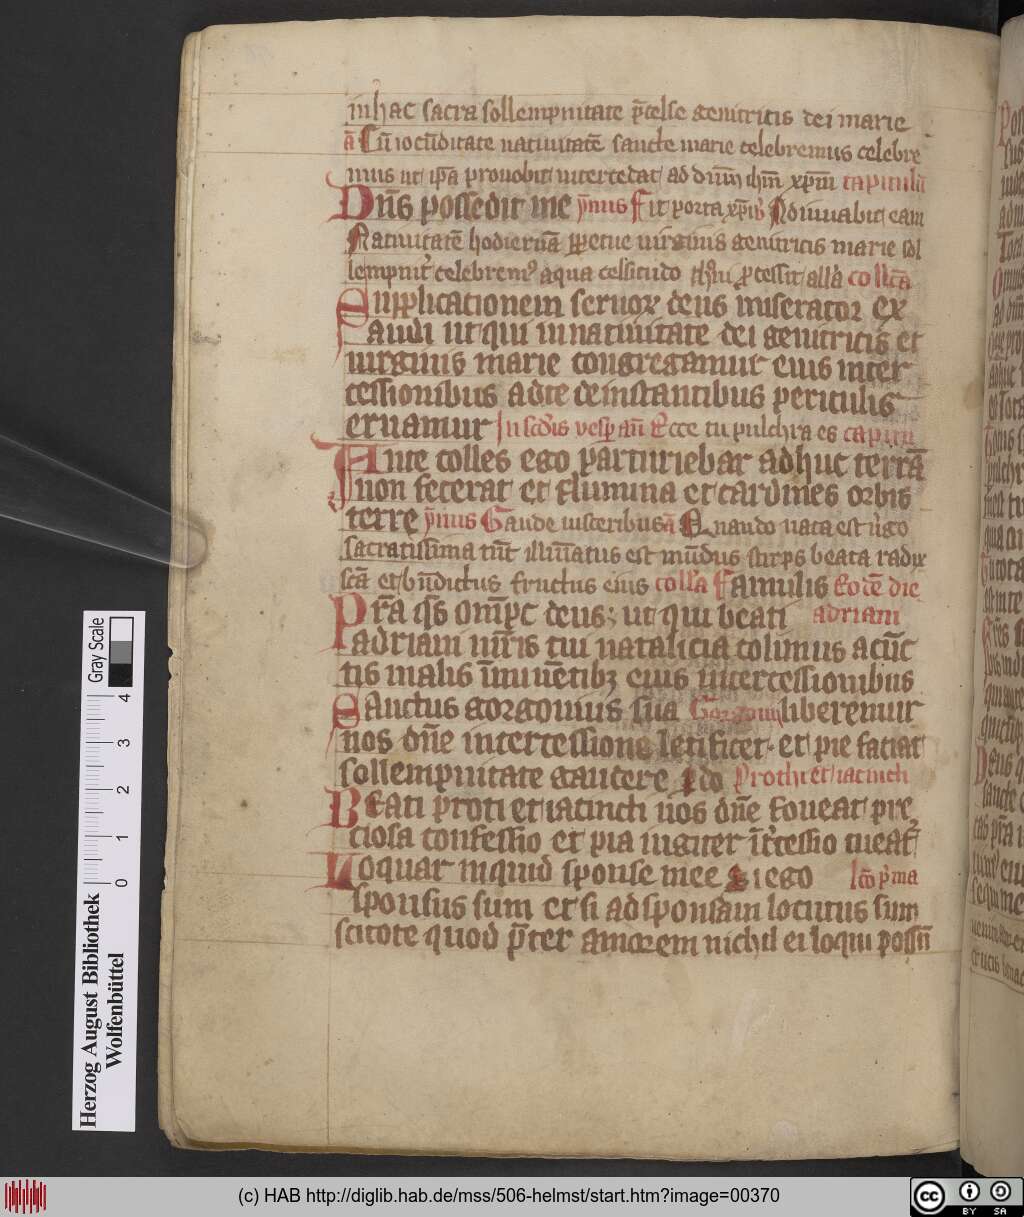 in hac sacra sollempnitate p̄celse genitricis dei marie
a̅ Cū iocūditate natiuitatē sancte marie celebremus celebre
mus ut ip̄a pro nobis intercedat ad dn̄m ihm̄ xp̄m capitulū
Dn̄s possedit me ẏmnus Fit porta xp̄i Adiuuabit eam
Natiuitatē hodiernā ꝑpetue uirginis genitricis marie sol
lempnit̉ celebremꝰ a qua celsitudo ꝓcessit all̄a coll̄cā
Supplicationem seruoꝝ deus miserator ex
audi ut qui in natiuitate dei genitricis et
uirginis marie congregamur eius inter
cessionibus ad te de instantibus periculis
eruamur In sc̄dis vesp̄ an̄ Ecce tu pulchra es capitu
Ante colles ego parturiebar adhuc terrā
non fecerat et flumina et cardines orbis
terre ẏmnus Gaude uisceribus a̅ Quando nata est ů̉go
sacratissima tūc illuīatus est mūdus stirps beata radix
scā et bn̄dictus fructus eius coll̄a Famulis Eodē die
Pr̄a qs̄ omp̄c deus; ut qui beati adriani
adriani mr̄is tui natalicia colimus a cūc
tis malis īminētibꝫ eius intercessionibus
Sanctus gorgonius sua Gorgonij liberemur
nos dn̄e intercessione letificet· et pie faciat
sollempnitate gaudere ꝑ do Prothi et iacincti
Beati proti et iacincti nos dn̄e foueat pre
ciosa confessio et pia iugiter īt̉cessio tueat̉
Loquar inquid sponse mee si ego lc̄o p̉ma
sponsus sum et si ad sponsam locutus sum
scitote quod p̄ter amorem nichil ei loqui possū
Herzog August Bibliothek
Wolfenbüttel
Gray Scale
0 1 2 3 4
(c) HAB http://diglib.hab.de/mss/506-helmst/start.htm?image=00370
cc BY SA